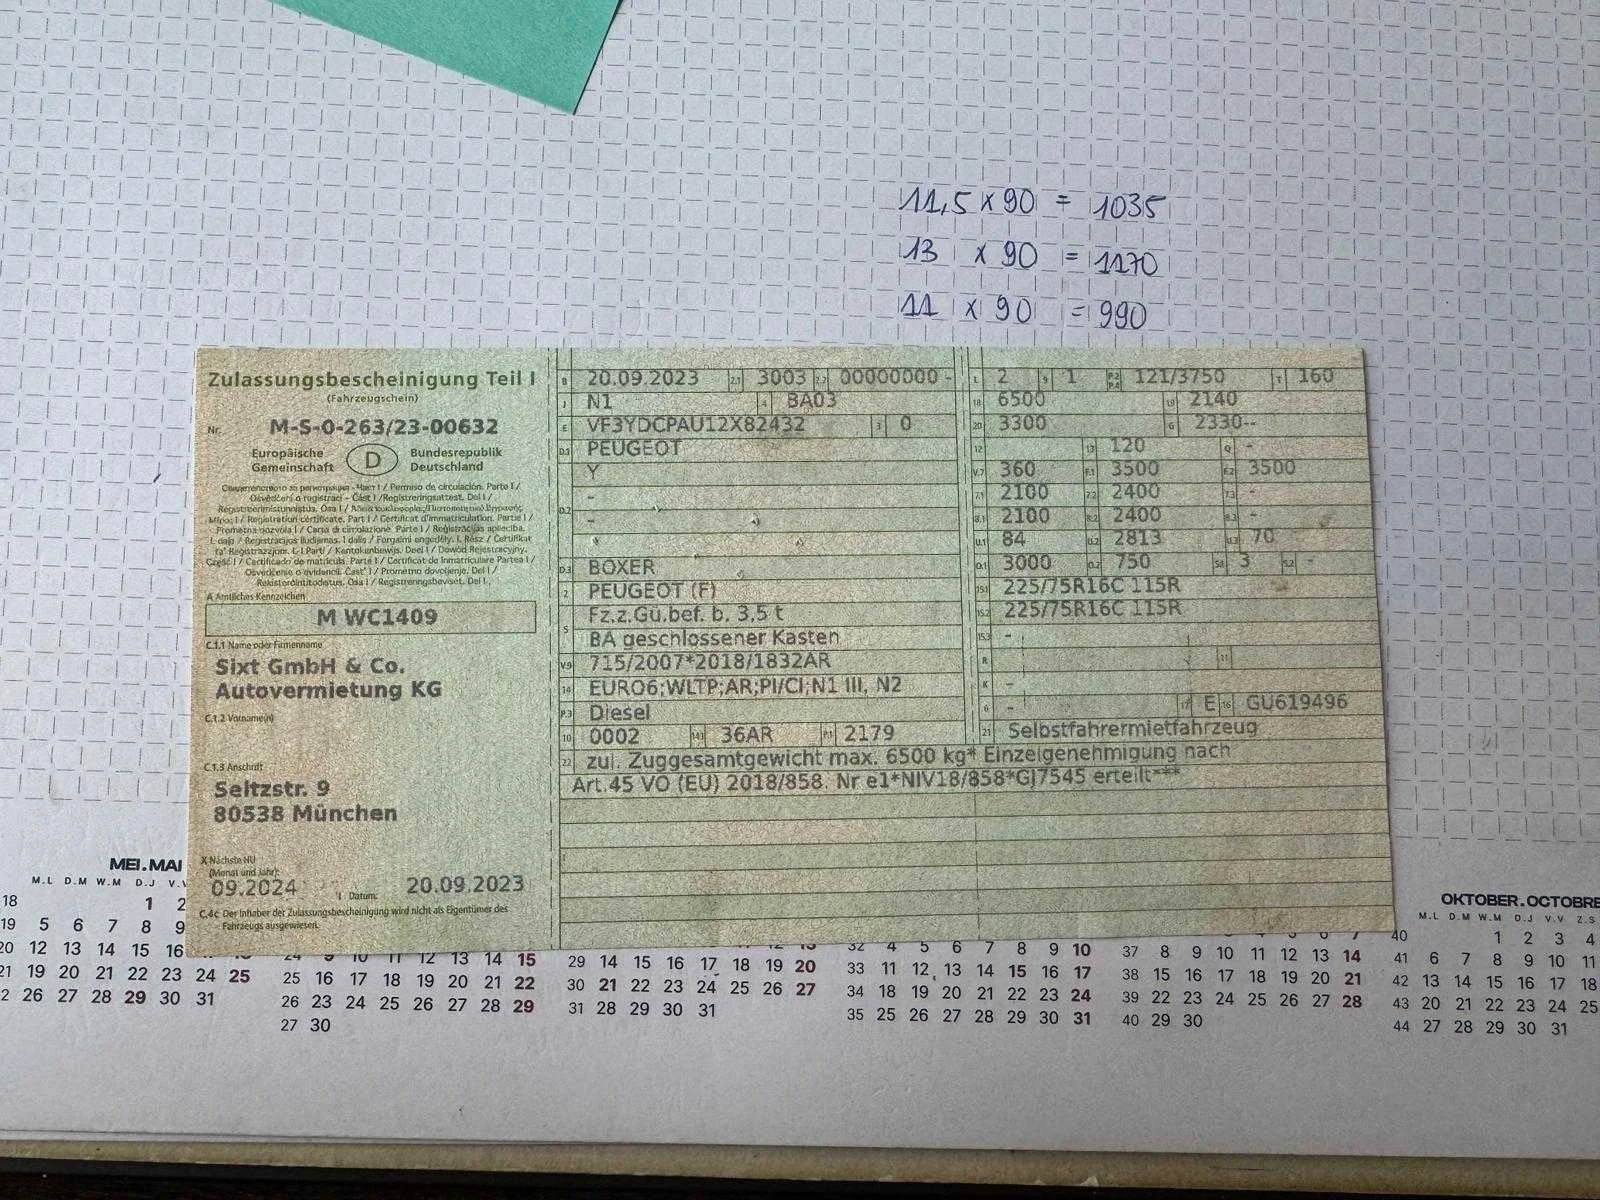 11,5 x 90 = 1035
13 x 90 = 1170
11 x 90 = 990
Zulassungsbescheinigung Teil I
(Fahrzeugschein)
Nr. M-S-0-263/23-00632
Europäische Gemeinschaft D Bundesrepublik Deutschland
A Amtliches Kennzeichen
M WC1409
C.1.1 Name oder Firmenname
Sixt GmbH & Co.
Autovermietung KG
C.1.2 Vorname(n)
C.1.3 Anschrift
Seitzstr. 9
80538 München
X Nächste HU
(Monat und Jahr):
09.2024 I Datum: 20.09.2023
C.4c Der Inhaber der Zulassungsbescheinigung wird nicht als Eigentümer des
Fahrzeugs ausgewiesen.
B 20.09.2023 2.1 3003 2.2 00000000 -
J N1 4 BA03
E VF3YDCPAU12X82432 3 0
D.1 PEUGEOT
Y
-
D.2 -
D.3 BOXER
2 PEUGEOT (F)
5 Fz.z.Gü.bef. b. 3,5 t
BA geschlossener Kasten
V.9 715/2007*2018/1832AR
14 EURO6;WLTP;AR;PI/CI;N1 III, N2
P.3 Diesel
10 0002 14.1 36AR P.1 2179
L 2 9 1 P.2 P.4 121/3750 T 160
18 6500 19 2140
20 3300 G 2330--
12 13 120 Q -
V.7 360 F.1 3500 F.2 3500
7.1 2100 7.2 2400 7.3 -
8.1 2100 8.2 2400 8.3 -
U.1 84 U.2 2813 U.3 70
O.1 3000 O.2 750 S.1 3 S.2 -
15.1 225/75R16C 115R
15.2 225/75R16C 115R
15.3 -
R 11
K -
6 - 17 E 16 GU619496
21 Selbstfahrermietfahrzeug
22 zul. Zuggesamtgewicht max. 6500 kg* Einzelgenehmigung nach
Art.45 VO (EU) 2018/858. Nr e1*NIV18/858*GJ7545 erteilt***
MEI.MAI
M.L D.M W.M D.J V.V
18 1 2
19 5 6 7 8 9
20 12 13 14 15 16
21 19 20 21 22 23 24 25
2 26 27 28 29 30 31
24 9 10 11 12 13 14 15
25 16 17 18 19 20 21 22
26 23 24 25 26 27 28 29
27 30
29 14 15 16 17 18 19 20
30 21 22 23 24 25 26 27
31 28 29 30 31
32 4 5 6 7 8 9 10
33 11 12 13 14 15 16 17
34 18 19 20 21 22 23 24
35 25 26 27 28 29 30 31
37 8 9 10 11 12 13 14
38 15 16 17 18 19 20 21
39 22 23 24 25 26 27 28
40 29 30
OKTOBER.OCTOBRE
M.L D.M W.M D.J V.V Z.S
40 1 2 3 4
41 6 7 8 9 10 11
42 13 14 15 16 17 18
43 20 21 22 23 24 25
44 27 28 29 30 31